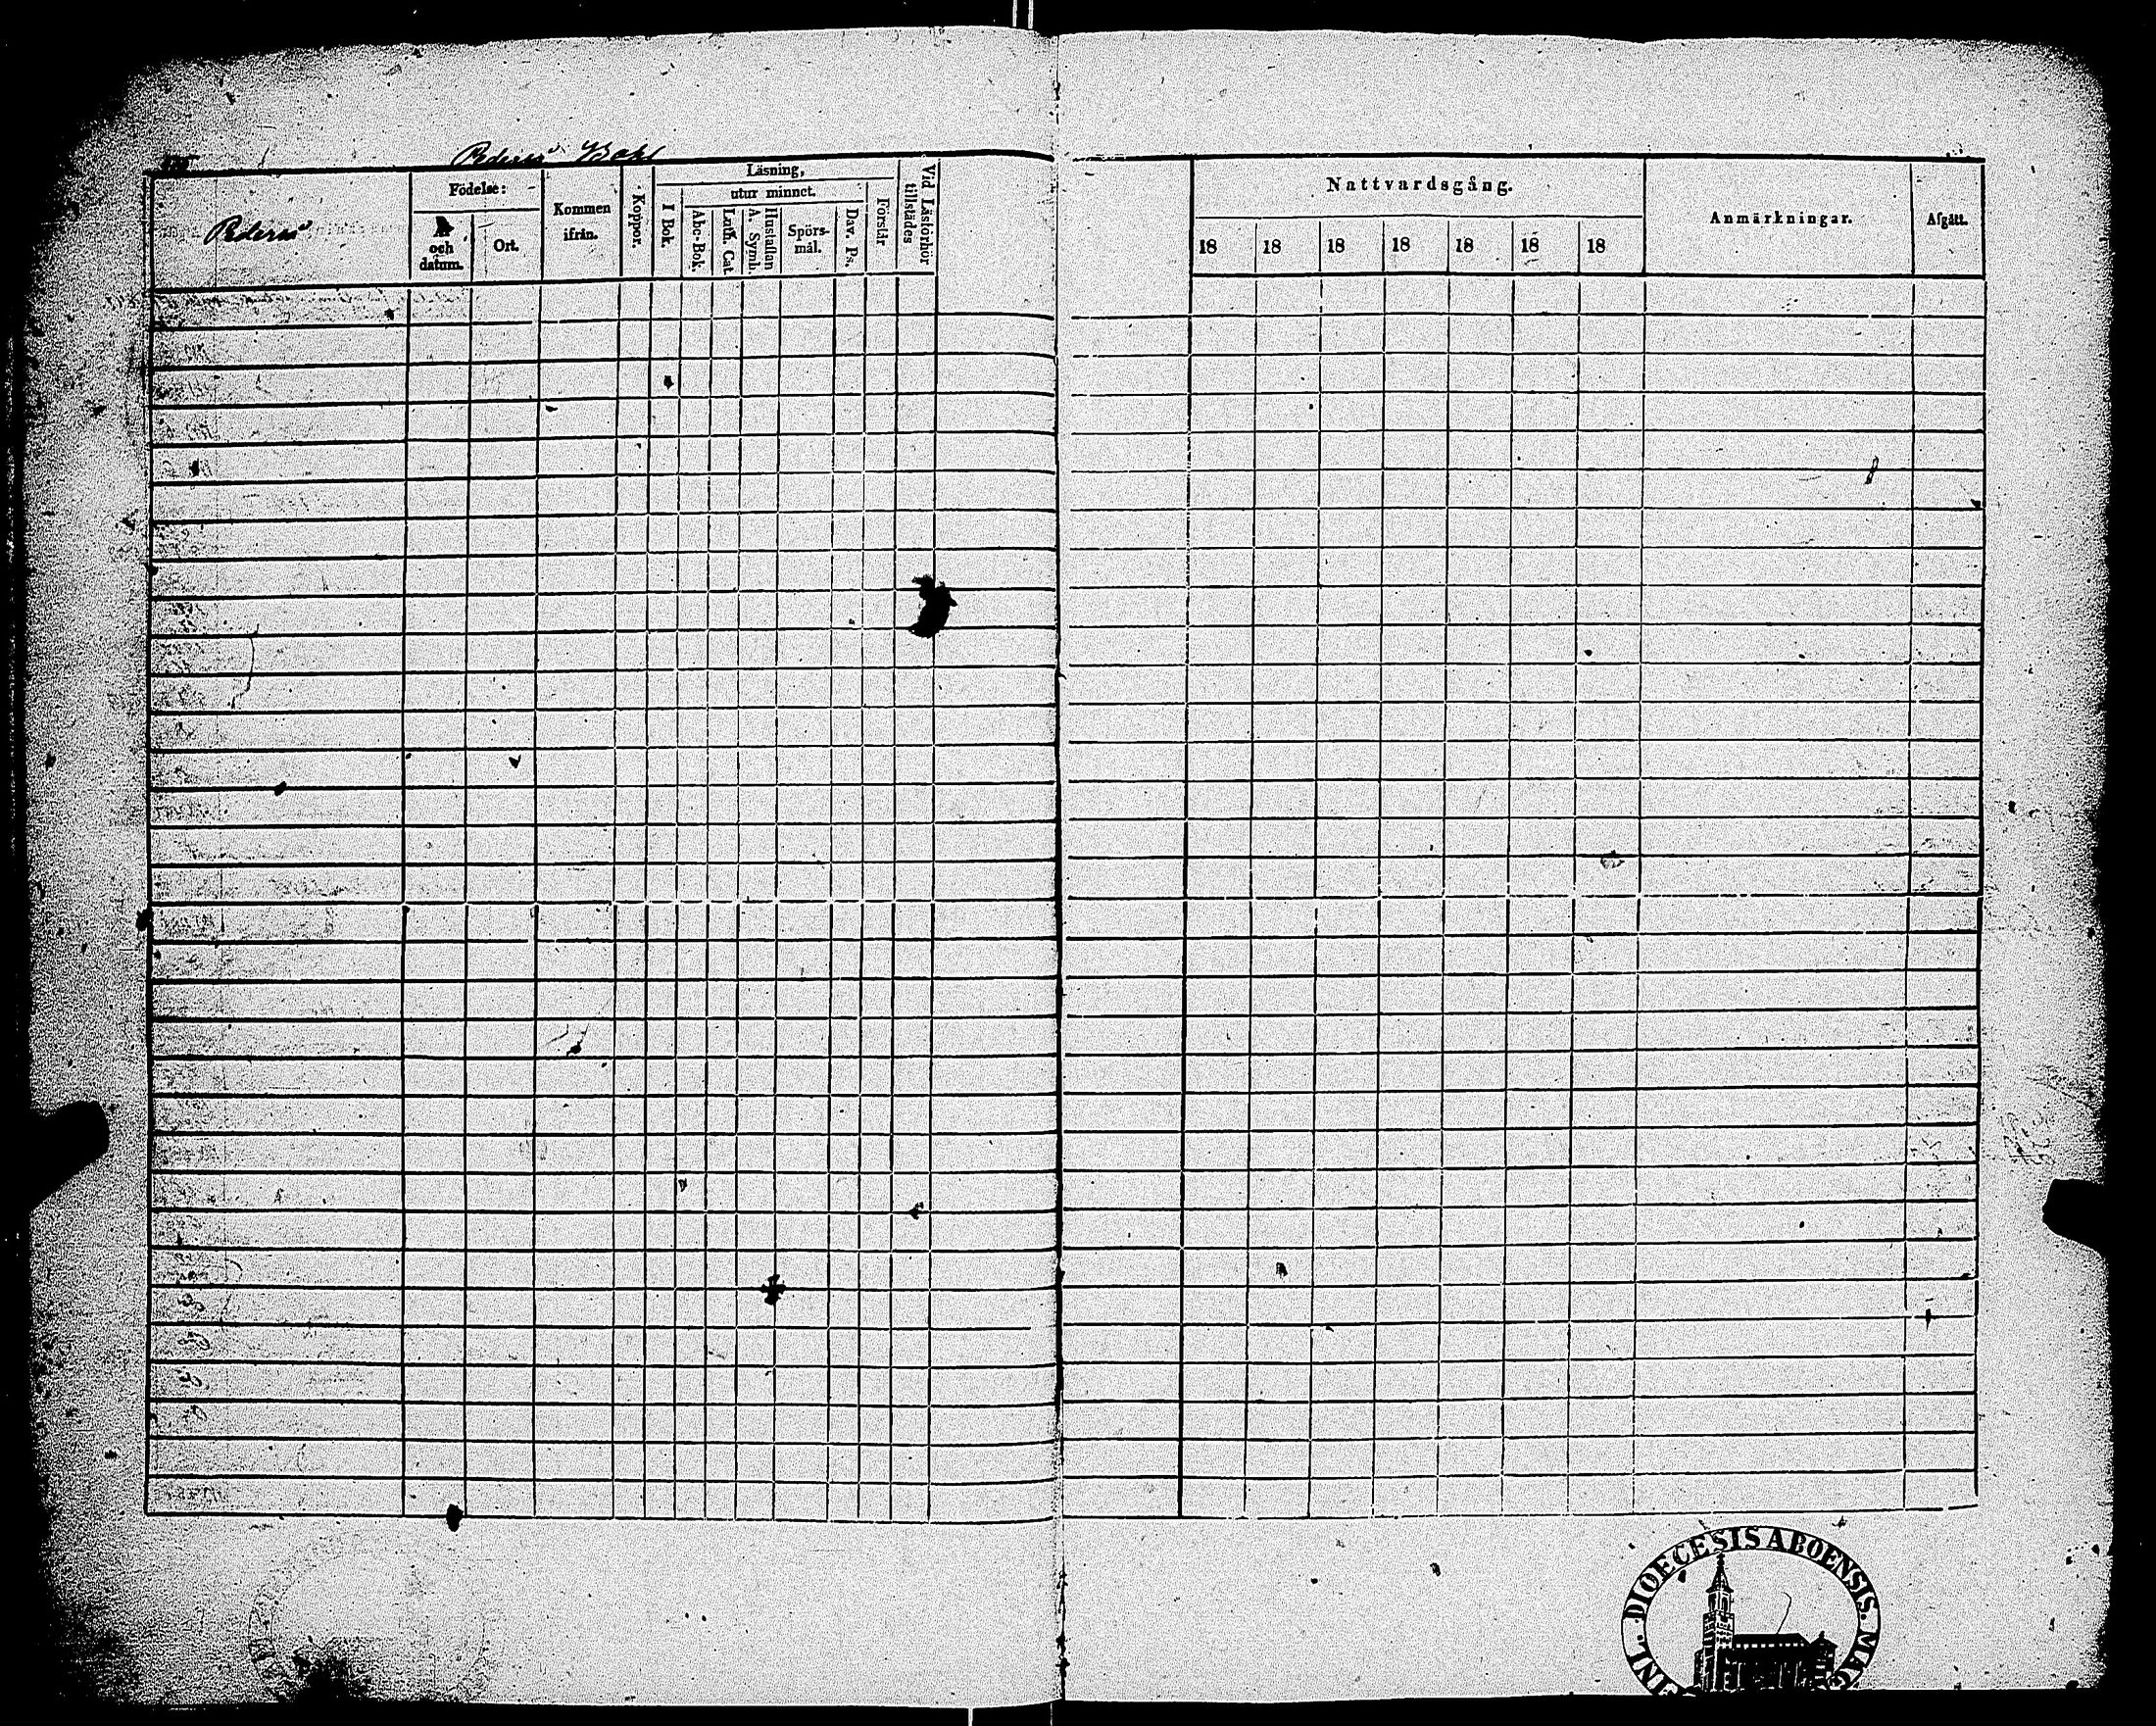 Pederns Bohl
Läsning,
Vid Läsförhör tillstädes
Födelse:
utur minnet.
Pederns
Kommen ifrån.
Koppor.
I Bok.
Abc-Bok.
Luth. Cat.
Hustaflan A. Symb.
Spörs-mål.
Dav. Ps.
Förstår
År och datum.
Ort.
Nattvardsgång.
Anmärkningar.
Afgått.
18 18 18 18 18 18 18
DIOECESIS ABOENSIS. MAG